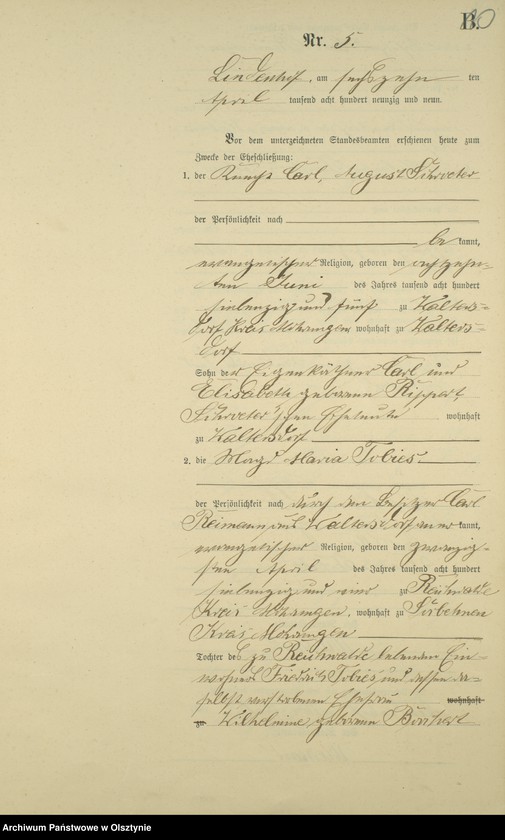 B.
10
Nr. 5.
Lindenhof, am sechszehn ten
April tausend acht hundert neunzig und neun.
Vor dem unterzeichneten Standesbeamten erschienen heute zum
Zwecke der Eheschließung:
1. der Carl, August
der Persönlichkeit nach
be kannt,
evangelischer Religion, geboren den achtzehn-
ten Juni des Jahres tausend acht hundert
siebenzig und fünf zu Walters-
dorf Kreis Mohrungen, wohnhaft zu Walters-
dorf
Sohn der Eigenkäthner Carl und
Elisabeth geborene Rippert
schen Eheleute wohnhaft
zu Waltersdorf
2. die Magd Maria Tobies.
der Persönlichkeit nach durch den Besitzer Carl
Reimann aus Waltersdorf aner kannt,
evangelischer Religion, geboren den zwanzig-
sten April des Jahres tausend acht hundert
siebenzig und zu Reichwalde
Kreis Mohrungen, wohnhaft zu
Kreis Mohrungen
Tochter des zu Reichwalde lebenden Ein-
wohners Friedrich Tobies und dessen da-
selbst verstorbenen Ehefrau wohnhaft
zu Wilhelmine, geborene
Archiwum Państwowe w Olsztynie